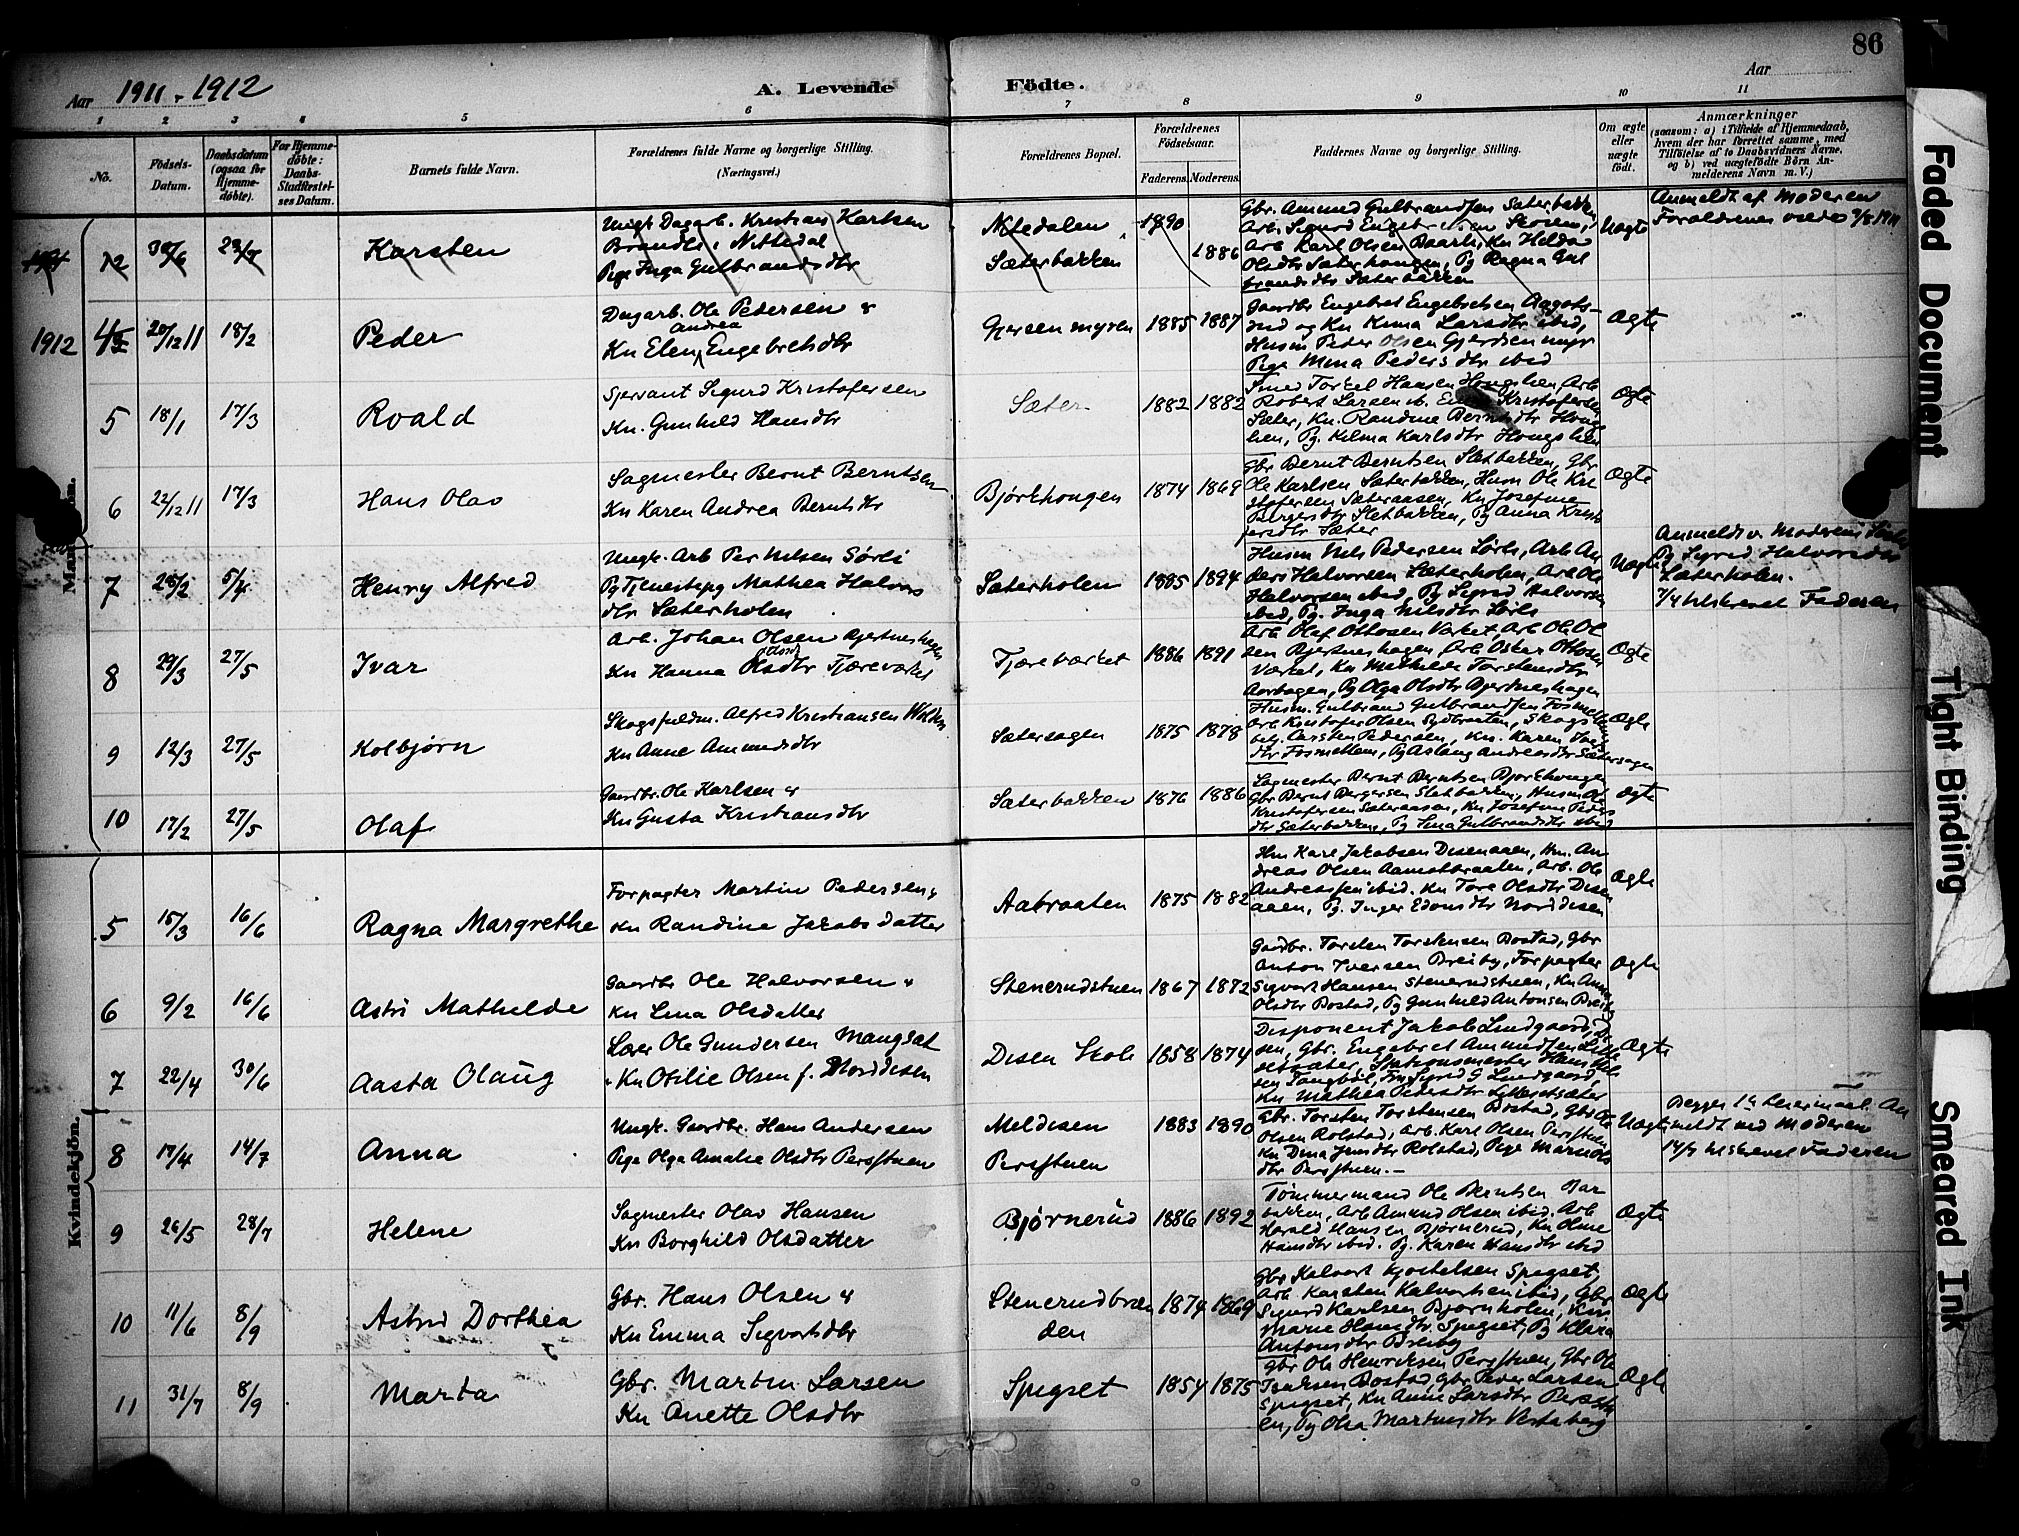 86
Aar 1911-1912 A. Levende Födte. Aar
1 2 3 4 5 6 7 8 9 10 11
No. Födsels-Datum. Daabsdatum (ogsaa for Hjemme-döbte). For Hjemme-döbte: Daabs-Stadfæstel-ses Datum. Barnets fulde Navn. Forældrenes fulde Navne og borgerlige Stilling. (Næringsvei.) Forældrenes Bopæl. Forældrenes Födselsaar. Faderens. Moderens. Faddernes Navne og borgerlige Stilling. Om ægte eller uægte födt. Anmærkninger (saasom: a) i Tilfælde af Hjemmedaab, hvem der har forrettet samme, med Tilföielse af to Daabsvidners Navne, og b) ved uægtefödte Börn Anmelderens Navn m. V.)
Mandkjön.
12 30/6 23/7 Karsten
Ungk Dagarb. Kristian Karlsen
Brandts, Nittedal
Pige Inga Gulbrandsdtr
Nitedalen 1890
Sæterbakken 1886
Gbr. Ammund Gulbrandsen Sæterbakken
Arb. Sigurd Engebretsen Skoien,
Arb Karl Olsen Baarli, Kn Helda
Olsdtr Sæterhaugen, Pg Ragna Gul
brandsdtr Sæterbakken
Uægte
Anmeldt af Moderen
Forældrenes viede
1912 4 20/12 11 18/2 Peder
Dagarb. Ole Pedersen &
Kn Elen Andrea Engebretsdtr
Gjersenmyren 1885 1887
Gaardbr Engebret Engebretsen Aagots-
rud og Kn Anna Larsdtr ibid,
Husm Peder Olsen Gjerdsenmyr
Pige Mina Pedersdtr ibid
Ægte
5 18/1 17/3 Roald
Sjersant Sigurd Kristofersen
Kn. Gunhild Hansdtr
Sæter 1882 1882
Smed Torkel Hansen Hongslien, Arb
Robert Larsen ib. Kristofersen
Sæter, Kn. Randine Berntsdtr Hongs
lien, Pg. Hilma Karlsdtr Hongslien
Ægte
6 22/12 11 17/3 Hans Olav
Sagmester Bernt Berntsen
Kn Karen Andrea Berntsdtr
Bjørkhougen 1874 1869
Gbr Bernt Berntsen Sletbakken, Gbr
Ole Karlsen Sæterbakken, Husm Ole Kri
stofersen Sæteraasen, Kn Josefine
Bergersdtr Sletbakken, Pg Anna Kristo
fersdtr Sæter
Ægte
7 28/2 5/4 Henry Alfred
Ungk. Arb Per Nilsen Sörli
Pg Tjenestepg Mathea Halvors
dtr Sæterholen
Sæterholen 1885 1894
Husm Nils Pedersen Sörli, Arb An
ders Halvorsen Sæterholen, Arb Ole
Halvorsen ibid, Pg Sigrid Halvorsen
ibid, Pg. Inga Nilsdtr Sörli
Uægte
Anmeldt v. Moderens Søster
Pg Sigrid Halvorsdtr
Sæterholen.
7/4 tilskrevet Faderen
8 29/3 27/5 Ivar
Arb. Johan Olsen Bjertneshagen
Kn Hanna Olsdtr Tjæreverket
Tjæreverket 1886 1891
Arb Olaf Ottosen Verket, Arb Ole Ol
sen Bjertneshagen, Arb Oskar Ottosen
Verket, Kn Mathilde Torstensdtr
Aarhagen, Pg Olga Olsdtr Bjertneshagen
Ægte
9 12/3 27/5 Kolbjørn
Skogsfuldm. Alfred Kristiansen Wolden
Kn Anne Amundsdtr
Sætersagen 1875 1878
Husm. Gulbrand Gulbrandsen Fosmellem
Arb Kristofer Olsen Sydbraaten, Skogs
Carsten Pedersen, Kn. Karen Ivers
dtr Fosmellem, Pg Aslaug Andreasdtr Sætersagen
Ægte
10 17/2 27/5 Olaf
Gaardbr. Ole Karlsen &
Kn Gusta Kristiansdtr
Sæterbakken 1876 1886
Sagmester Bernt Berntsen Bjorkhougen
Gbr Bernt Bergersen Sletbakken, Husm Ole
Kristofersen Sæteraasen, Kn Josefine Peders
dtr Sæterbakken, Pg Lina Gulbrandsdtr ibid
Ægte
Kvindekjön.
5 15/3 16/6 Ragna Margrethe
Forpagter Martin Pedersen &
Kn Randine Jakobsdatter
Aabraaten 1875 1882
Hm Karl Jakobsen Disenaaen, Hm. An
dreas Olsen Aamotbraaten, Arb. Ole
Andreassen ibid. Kn Tora Olsdtr Disen
aaen, Pg. Inger Edvardsdtr Norddisen
Ægte
6 9/2 16/6 Astri Mathilde
Gaardbr Ole Halvorsen &
Kn Lina Olsdatter
Stenerudstuen 1867 1872
Gaardbr. Torsten Torstensen Bostad, Gbr
Anton Iversen Breiby, Forpagter
Sigvart Hansen Stenerudstuen, Kn Anna
Olsdtr Bostad, Pg Gunhild Antonsen Breiby
Ægte
7 22/4 30/6 Aasta Olaug
Lær Ole Gundersen Mangset
& Kn Otilie Olsen f. Norddisen
Disen Skole 1858 1874
Disponent Jakob Lindgaard, Di
sen, Gbr. Engebret Amundsen Lille
setsæter, Stationsmester Hans
sen Tangböl, Fru Sigrid G Lindgaard,
Kn Mathea Pedersdtr Lillesetsæter
Ægte
8 17/4 14/7 Anna
Ungk. Gaardbr. Hans Andersen
Pige Olga Amalie Olsdtr Persstuen
Meldisen 1883 1890
Persstuen
Gbr. Torsten Torstensen Bostad, Gbr Ole
Olsen Rolstad, Arb. Karl Olsen Persstuen
Kn Dina Jensdtr Rolstad, Pige Marn Ols
dtr Persstuen. —
Uægte
Begges 1ste Leiermaal. An
meldt ved Moderen
14/7 tilskrevet Faderen
9 26/5 28/7 Helene
Sagmester Olav Hansen
Kn Borghild Olsdatter
Bjørnerud 1886 1892
Tømmermand Ole Berntsen Bar
bakken, Arb Amund Olsen ibid. Arb
Harald Hansen Bjørnerud, Kn Oline
Hansdtr ibid. Pg. Karen Hansdtr ibid
Ægte
10 11/6 8/9 Astrid Dorthea
Gbr. Hans Olsen &
Kn Emma Sigvartsdtr
Stenerudbraa
den 1874 1869
Gbr Halvart Kjostelsen Spigset,
Arb Karsten Halvartsen ibid, Gbr
Sigurd Karlsen Bjørnholen, Kn
Marie Hansdtr Spigset, Pg Klara
Antonsdtr Breiby
Ægte
11 31/7 8/9 Marta
Gbr. Martin Larsen
Kn Anette Olsdtr
Spigset 1854 1875
Gbr Ole Henriksen Persstuen, Gbr Ole
Isaksen Bostad, Gbr Peder Larsen
Spigset, Kn Anne Larsdtr Perstu
en, Pg Olea Martinsdtr Vestaberg
Ægte
Faded Document
Tight Binding
Smeared Ink